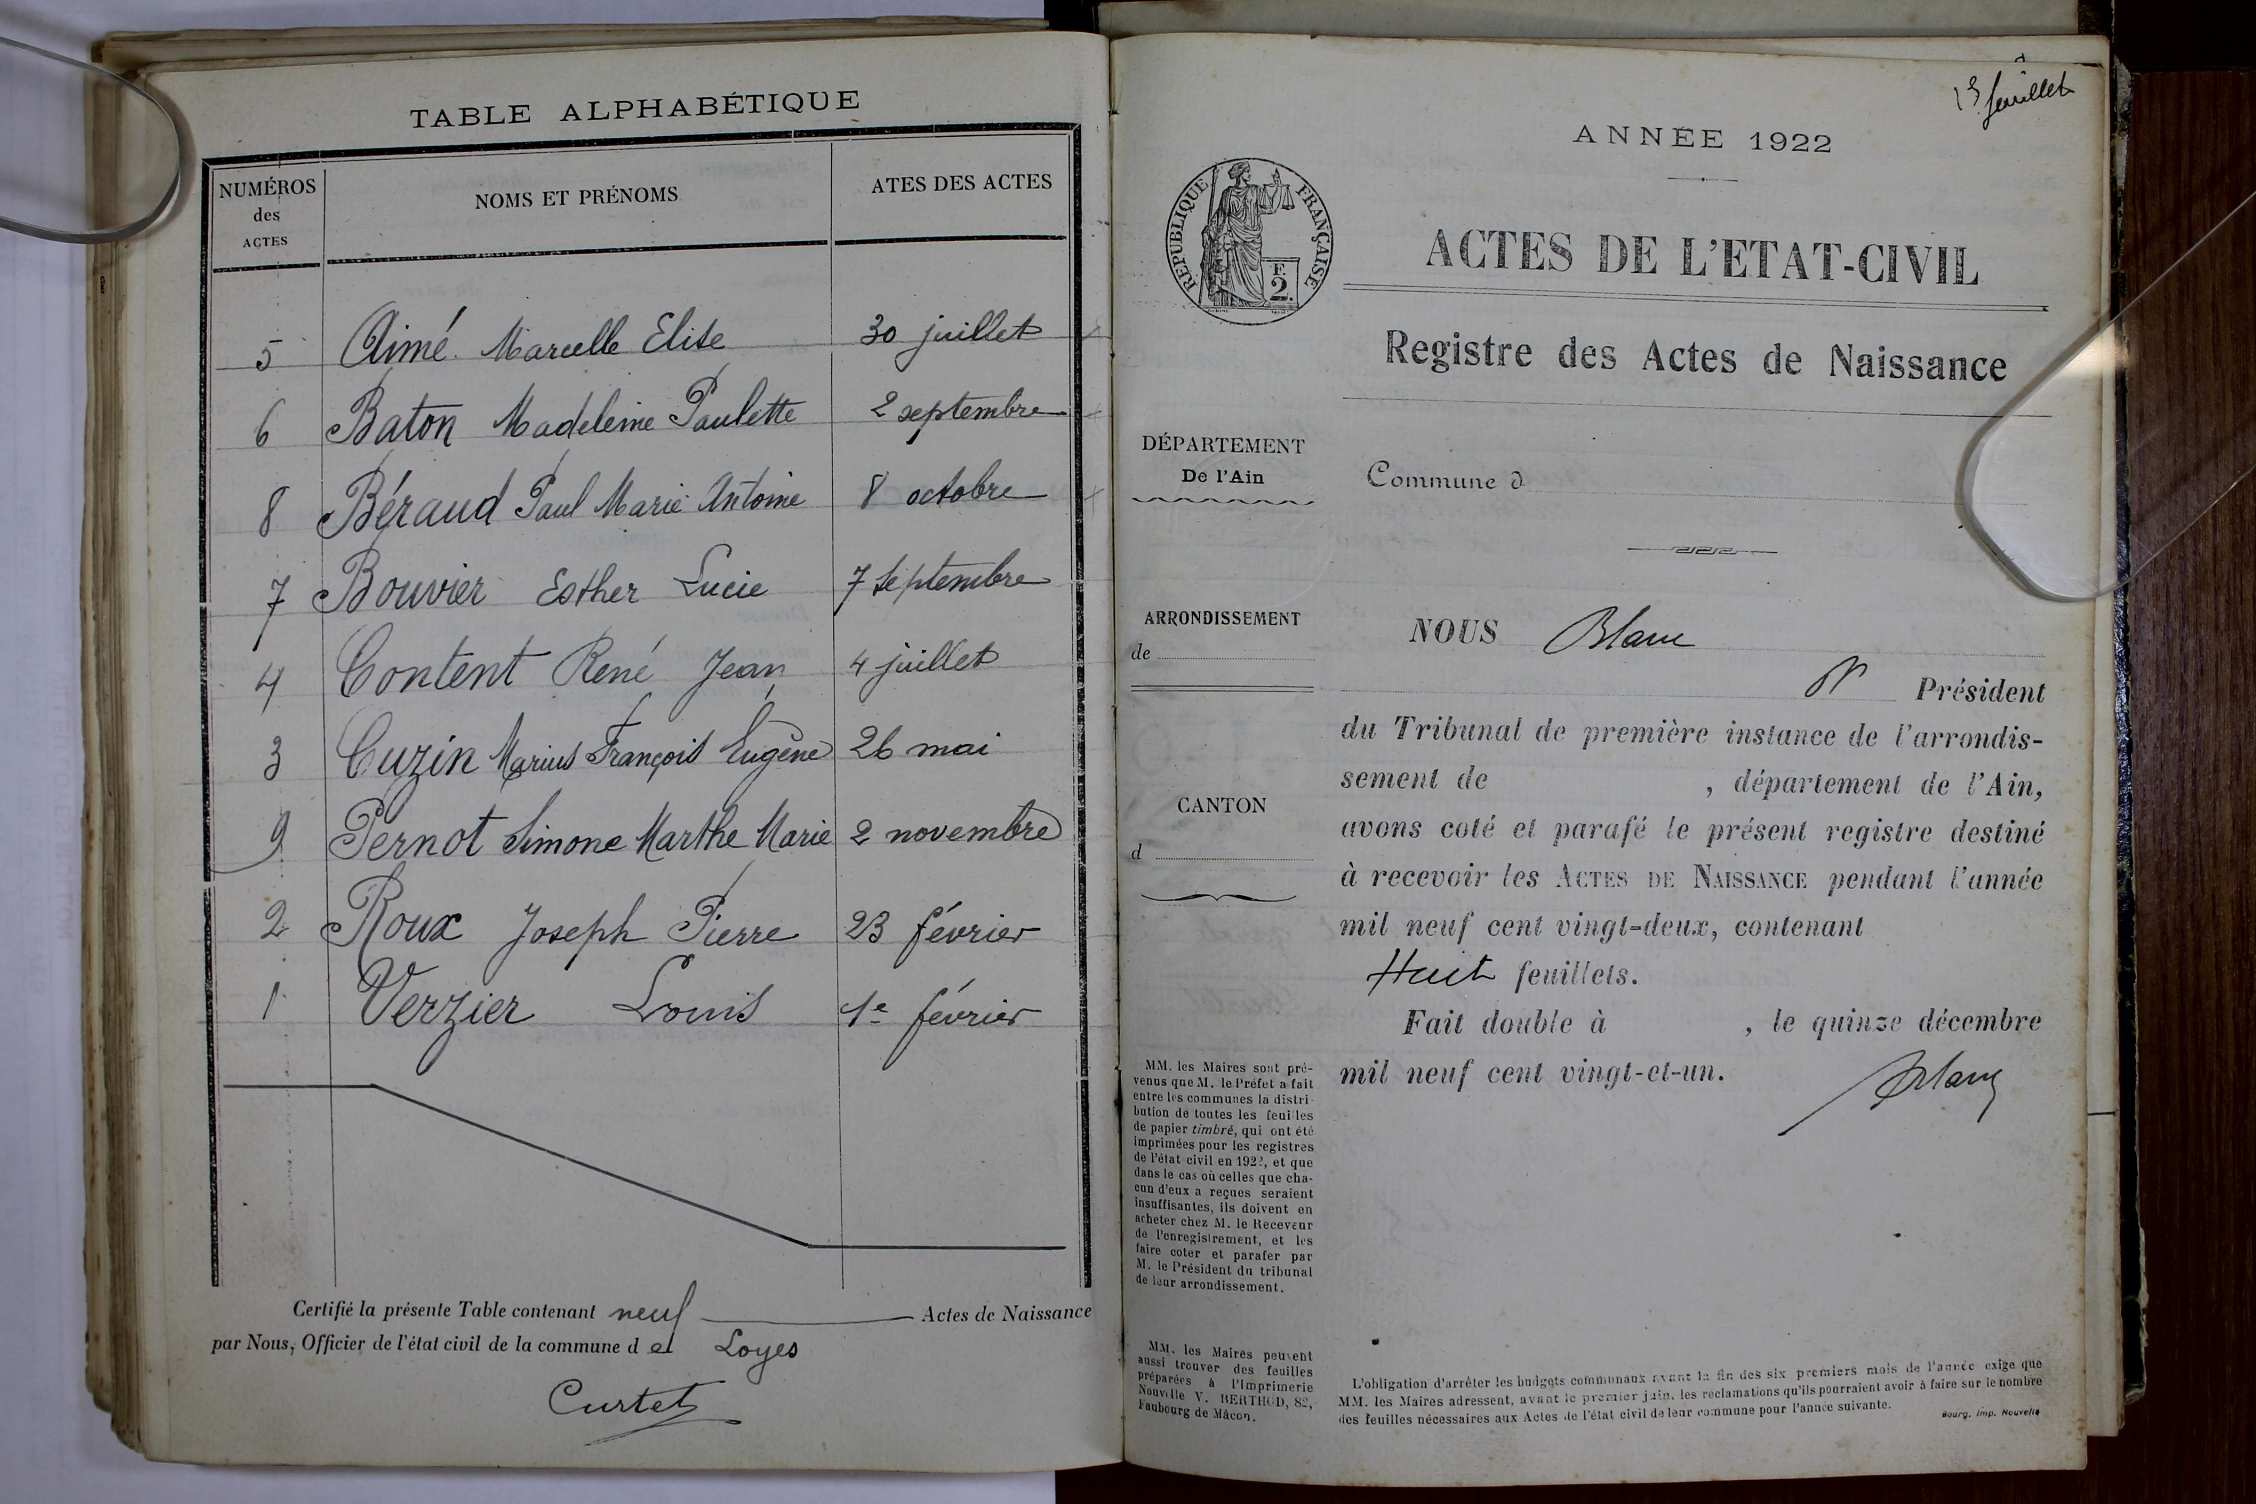 TABLE ALPHABÉTIQUE
NUMÉROS des ACTES NOMS ET PRÉNOMS ATES DES ACTES
5 Aimé Marcelle Elise 30 juillet
6 Baton Madeleine Paulette 2 septembre
8 Béraud Paul Marie Antoine 8 octobre
7 Bouvier Esther Lucie 7 septembre
4 Content René Jean 4 juillet
3 Cuzin Marius François Eugène 26 mai
9 Pernot Simone Marthe Marie 2 novembre
2 Roux Joseph Pierre 23 février
1 Verzier Louis 1e février
Certifié la présente Table contenant neuf Actes de Naissance
par Nous, Officier de l'état civil de la commune de Loyes
Curtet
feuillet
ANNÉE 1922
RÉPUBLIQUE FRANÇAISE
F.
2.
ACTES DE L'ETAT-CIVIL
Registre des Actes de Naissance
DÉPARTEMENT
De l'Ain
Commune d
ARRONDISSEMENT
de
CANTON
d
NOUS Blanc
Président
du Tribunal de première instance de l'arrondis-
sement de , département de l'Ain,
avons coté et parafé le présent registre destiné
à recevoir les ACTES DE NAISSANCE pendant l'année
mil neuf cent vingt-deux, contenant
Huit feuillets.
Fait double à , le quinze décembre
mil neuf cent vingt-et-un.
Blanc
MM. les Maires sont pré-
venus que M. le Préfet a fait
entre les communes la distri-
bution de toutes les feuilles
de papier timbré, qui ont été
imprimées pour les registres
de l'état civil en 1922, et que
dans le cas où celles que cha-
cun d'eux a reçues seraient
insuffisantes, ils doivent en
acheter chez M. le Receveur
de l'enregistrement, et les
faire coter et parafer par
M. le Président du tribunal
de leur arrondissement.
MM. les Maires peuvent
aussi trouver des feuilles
préparées à l'Imprimerie
Nouvelle V. BERTHOD, 82,
Faubourg de Mâcon.
L'obligation d'arrêter les budgets communaux avant la fin des six premiers mois de l'année exige que
MM. les Maires adressent, avant le premier juin, les réclamations qu'ils pourraient avoir à faire sur le nombre
des feuilles nécessaires aux Actes de l'état civil de leur commune pour l'année suivante.
Bourg. Imp. Nouvelle